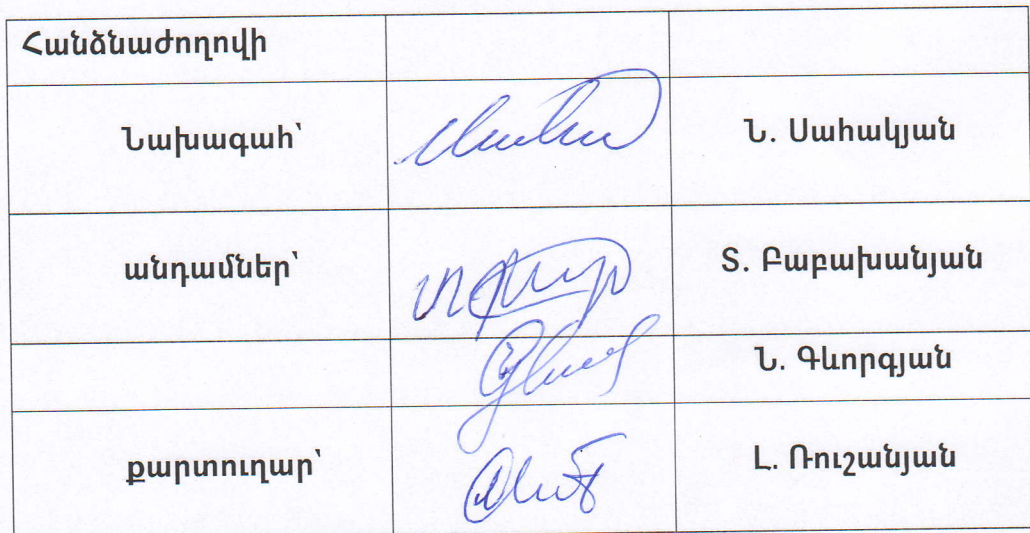 Հանձնաժողովի
Նախագահ՝ Ն. Սահակյան
անդամներ՝ Տ. Բաբախանյան
Ն. Գևորգյան
քարտուղար՝ Լ. Ռուշանյան